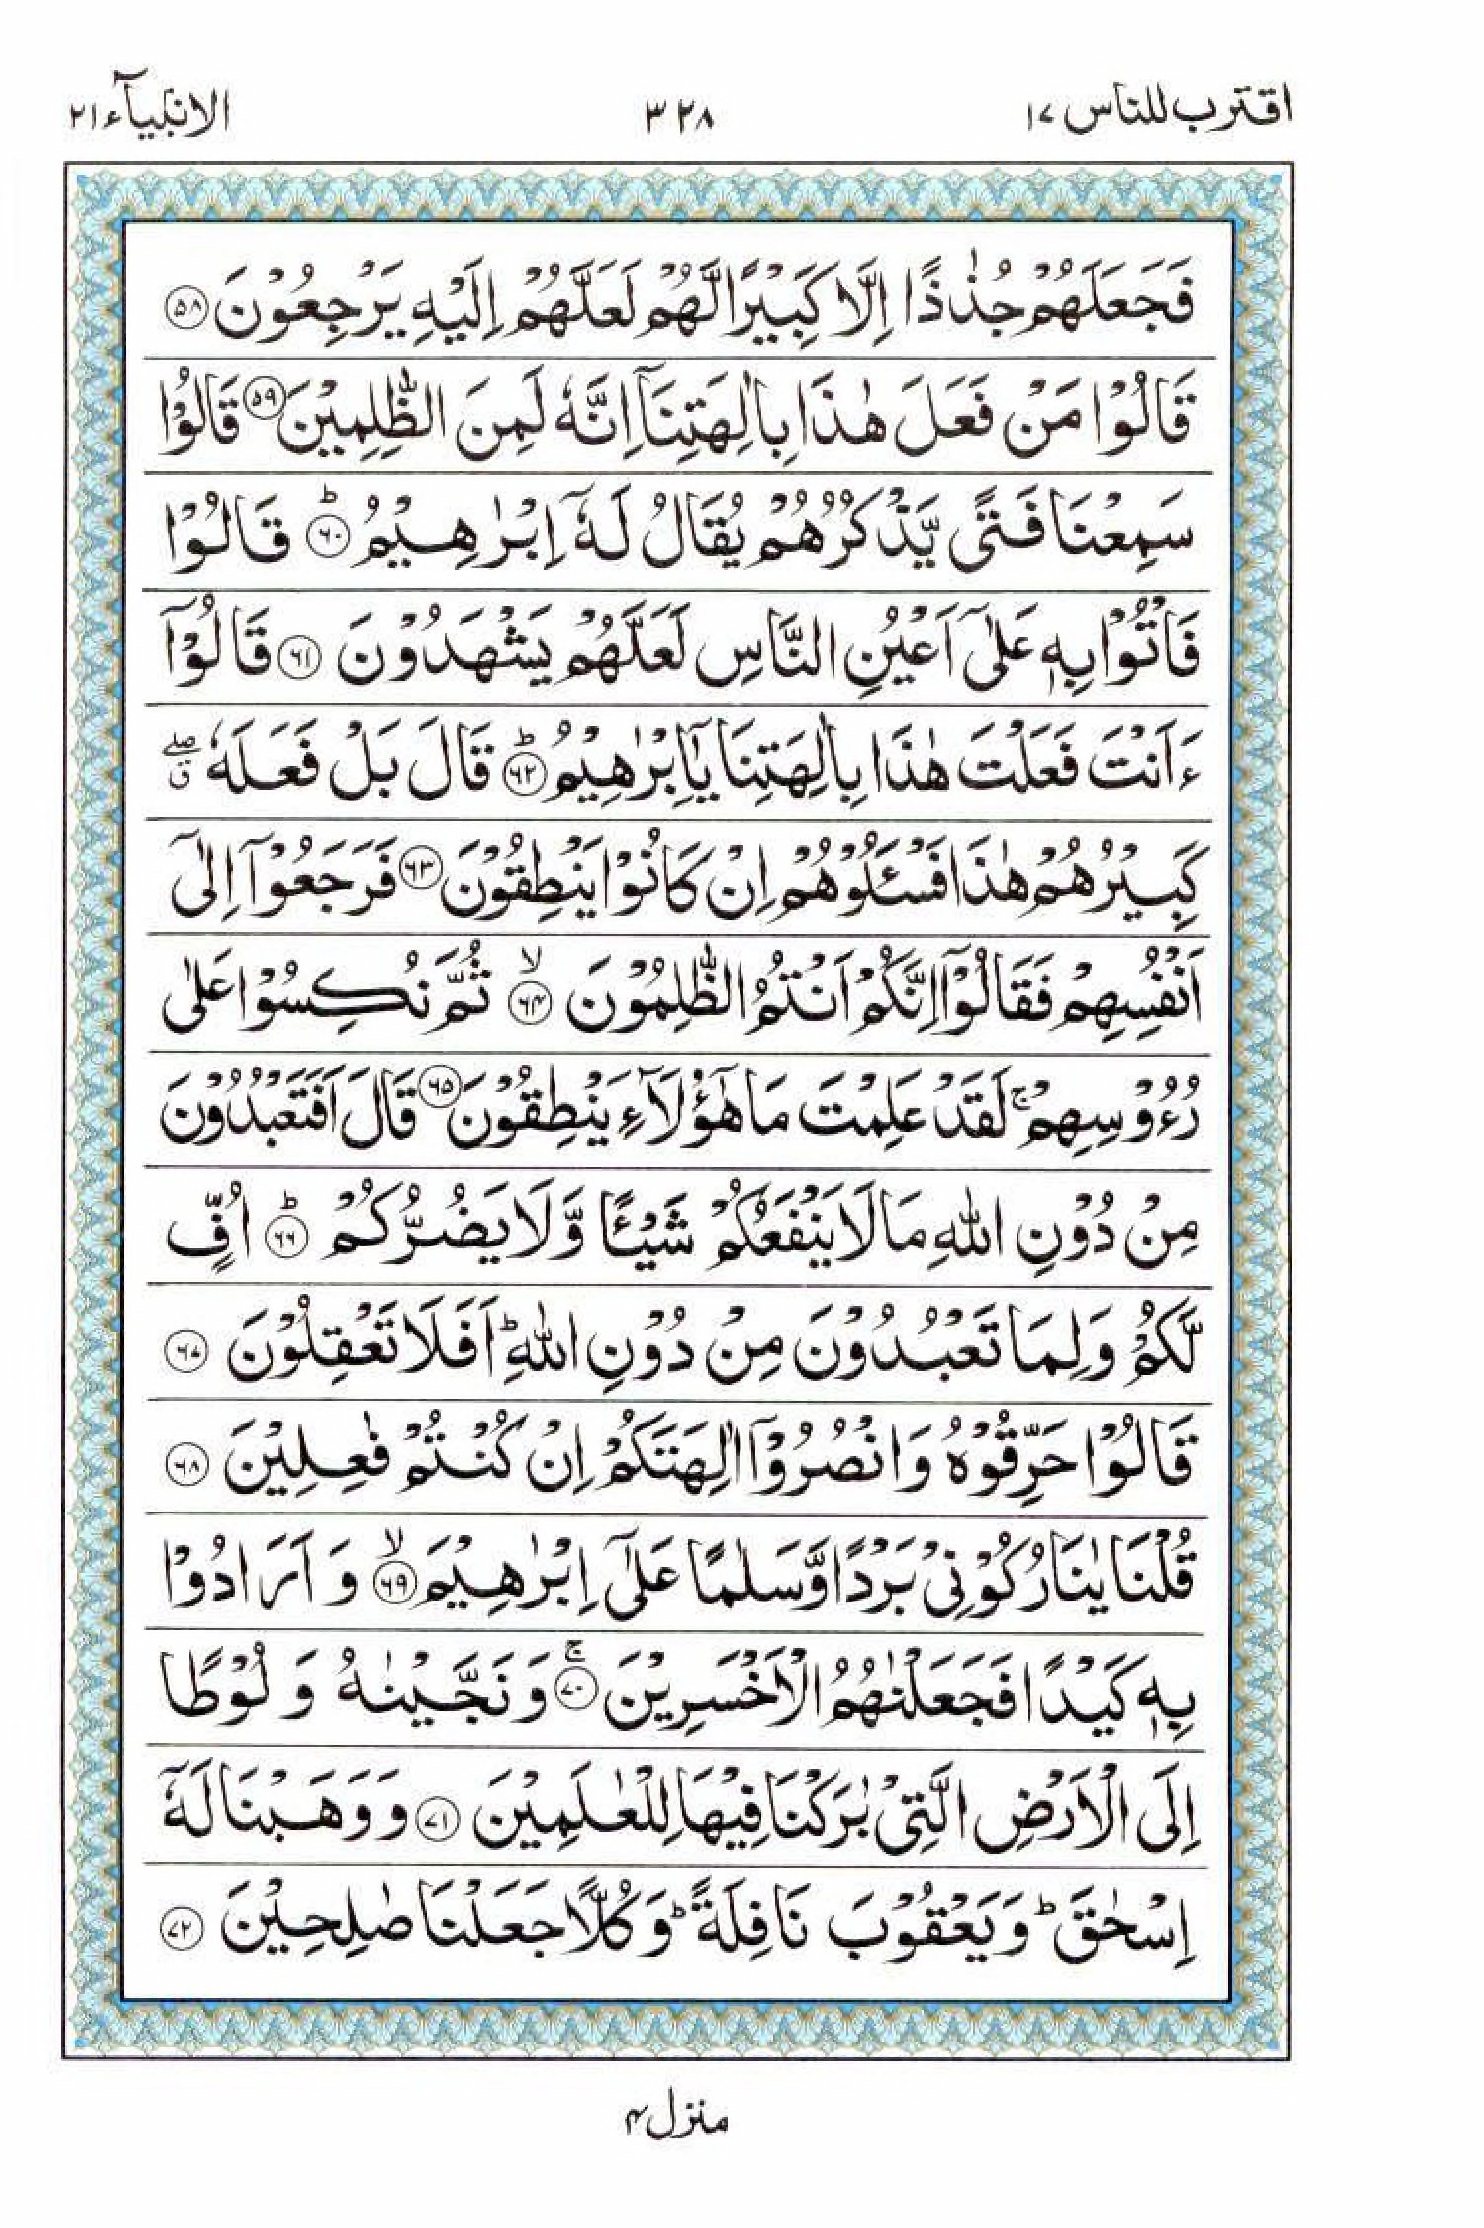 اقترب للناس ۱۷
۳۲۸
الانبیآء ۲۱
فَجَعَلَهُمْ جُذٰذًا اِلَّا كَبِیْرًا لَّهُمْ لَعَلَّهُمْ اِلَیْهِ یَرْجِعُوْنَ ﴿۵۸﴾
قَالُوْا مَنْ فَعَلَ هٰذَا بِاٰلِهَتِنَاۤ اِنَّهٗ لَمِنَ الظّٰلِمِیْنَ ﴿۵۹﴾ قَالُوْا
سَمِعْنَا فَتًی یَّذْكُرُهُمْ یُقَالُ لَهٗۤ اِبْرٰهِیْمُ ؕ﴿۶۰﴾ قَالُوْا
فَاْتُوْا بِهٖ عَلٰۤی اَعْیُنِ النَّاسِ لَعَلَّهُمْ یَشْهَدُوْنَ ﴿۶۱﴾ قَالُوْۤا
ءَاَنْتَ فَعَلْتَ هٰذَا بِاٰلِهَتِنَا یٰۤاِبْرٰهِیْمُ ؕ﴿۶۲﴾ قَالَ بَلْ فَعَلَهٗ ۖۗ
كَبِیْرُهُمْ هٰذَا فَسْـَٔلُوْهُمْ اِنْ كَانُوْا یَنْطِقُوْنَ ﴿۶۳﴾ فَرَجَعُوْۤا اِلٰۤی
اَنْفُسِهِمْ فَقَالُوْۤا اِنَّكُمْ اَنْتُمُ الظّٰلِمُوْنَ ۙ﴿۶۴﴾ ثُمَّ نُكِسُوْا عَلٰی
رُءُوْسِهِمْ ۚ لَقَدْ عَلِمْتَ مَا هٰۤؤُلَآءِ یَنْطِقُوْنَ ﴿۶۵﴾ قَالَ اَفَتَعْبُدُوْنَ
مِنْ دُوْنِ اللّٰهِ مَا لَا یَنْفَعُكُمْ شَیْـًٔا وَّ لَا یَضُرُّكُمْ ؕ﴿۶۶﴾ اُفٍّ
لَّكُمْ وَ لِمَا تَعْبُدُوْنَ مِنْ دُوْنِ اللّٰهِ ؕ اَفَلَا تَعْقِلُوْنَ ﴿۶۷﴾
قَالُوْا حَرِّقُوْهُ وَ انْصُرُوْۤا اٰلِهَتَكُمْ اِنْ كُنْتُمْ فٰعِلِیْنَ ﴿۶۸﴾
قُلْنَا یٰنَارُ كُوْنِیْ بَرْدًا وَّ سَلٰمًا عَلٰۤی اِبْرٰهِیْمَ ۙ﴿۶۹﴾ وَ اَرَادُوْا
بِهٖ كَیْدًا فَجَعَلْنٰهُمُ الْاَخْسَرِیْنَ ۚ﴿۷۰﴾ وَ نَجَّیْنٰهُ وَ لُوْطًا
اِلَی الْاَرْضِ الَّتِیْ بٰرَكْنَا فِیْهَا لِلْعٰلَمِیْنَ ﴿۷۱﴾ وَ وَهَبْنَا لَهٗۤ
اِسْحٰقَ ؕ وَ یَعْقُوْبَ نَافِلَةً ؕ وَ كُلًّا جَعَلْنَا صٰلِحِیْنَ ﴿۷۲﴾
منزل ۴